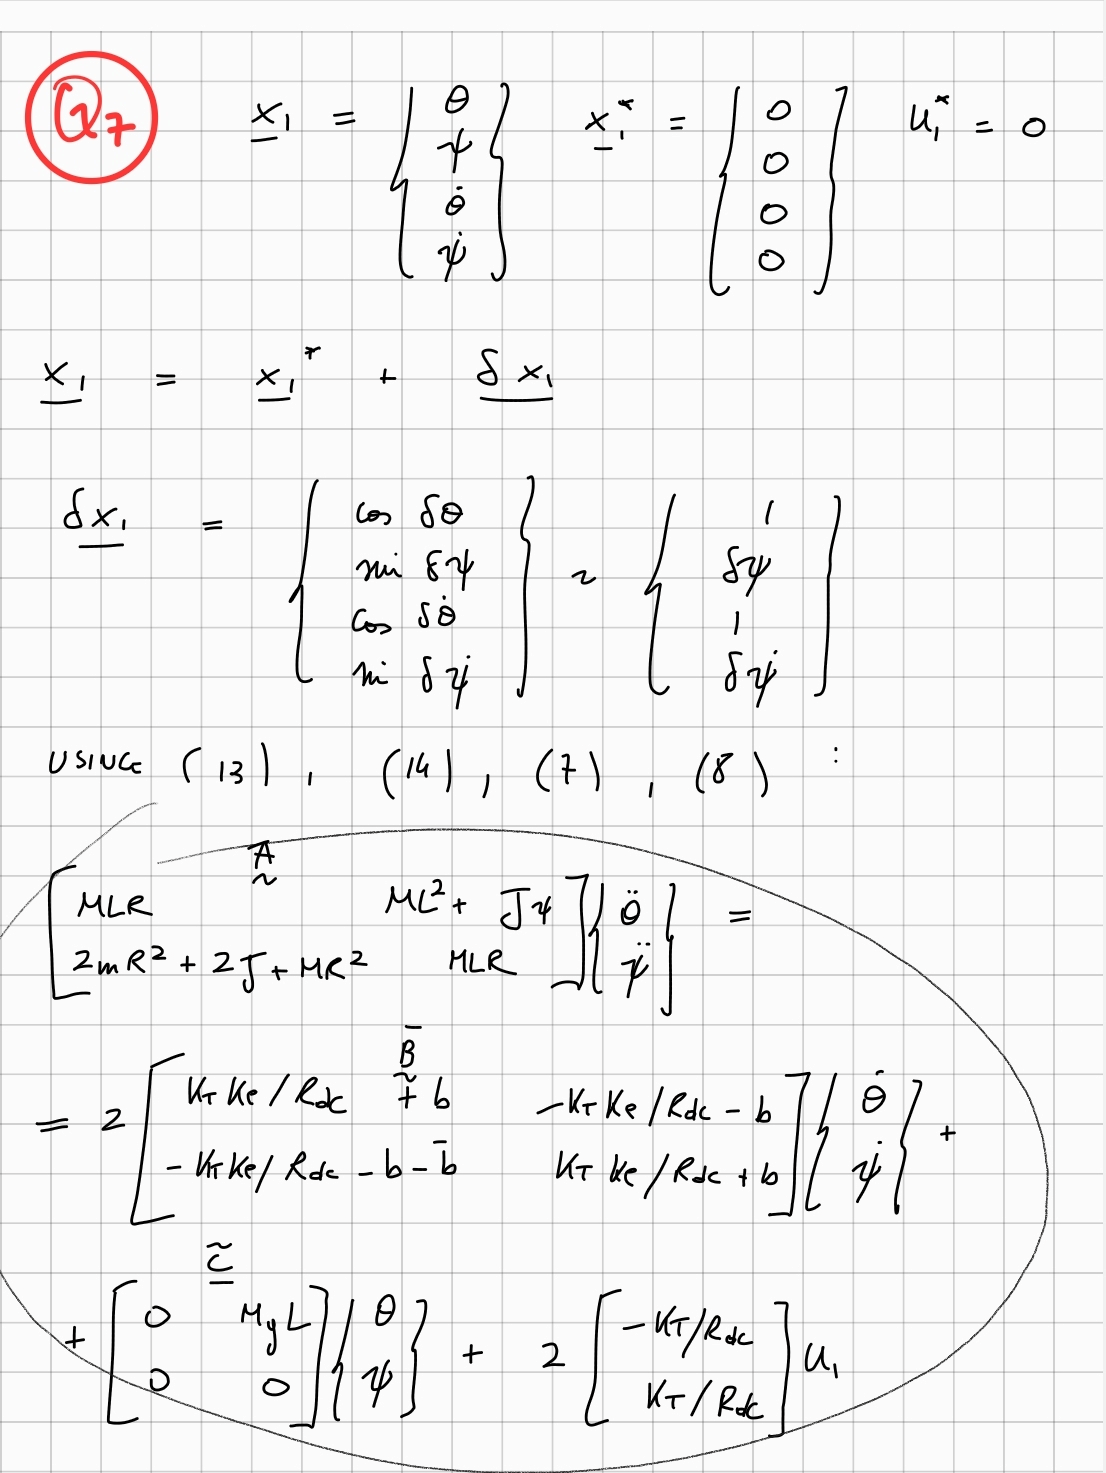 Q7
x1 = { θ ψ θ̇ ψ̇ } x1* = { 0 0 0 0 } u1* = 0
x1 = x1* + δx1
δx1 = { cos δθ sin δψ cos δθ̇ sin δψ̇ } ~ { 1 δψ 1 δψ̇ }
USING (13), (14), (7), (8) :
A
[ MLR ML² + Jψ
2mR² + 2J + MR² MLR ] { θ̈ ψ̈ } =
B
= 2 [ KT Ke / Rdc + b -KT Ke / Rdc - b
- KT Ke / Rdc - b - b̄ KT Ke / Rdc + b ] { θ̇ ψ̇ } +
C
+ [ 0 MgL
0 0 ] { θ ψ } + 2 [ -KT/Rdc
KT/Rdc ] u1